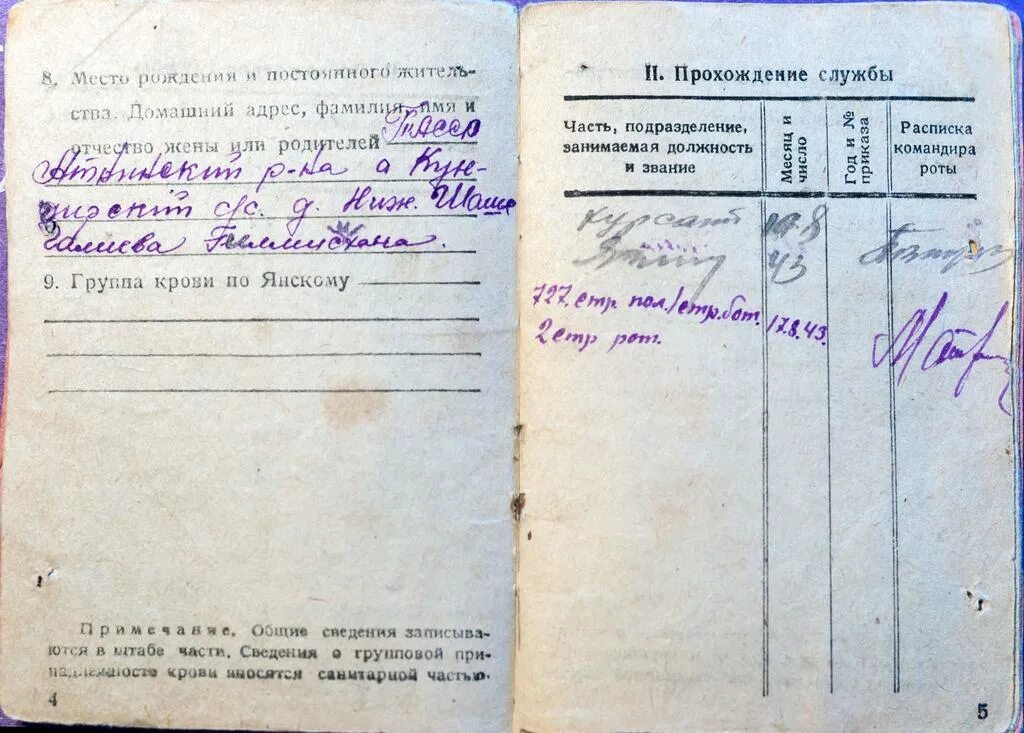 8. Место рождения и постоянного житель-
ства. Домашний адрес, фамилия, имя и
отчество жены или родителей ТАССР
Атнинский р-на а Кун-
гирский с/с. д. Ниж. Шаши
Галиева Гиммистана.
9. Группа крови по Янскому
Примечание. Общие сведения записыва-
ются в штабе части. Сведения о групповой при-
надлежности крови вносятся санитарной частью.
4
II. Прохождение службы
Часть, подразделение,
занимаемая должность
и звание
Месяц и
число
Год и №
приказа
Расписка
командира
роты
курсант 19.8
43
727 стр. пол/стр. бат. 17.8.43.
2 стр рот.
5